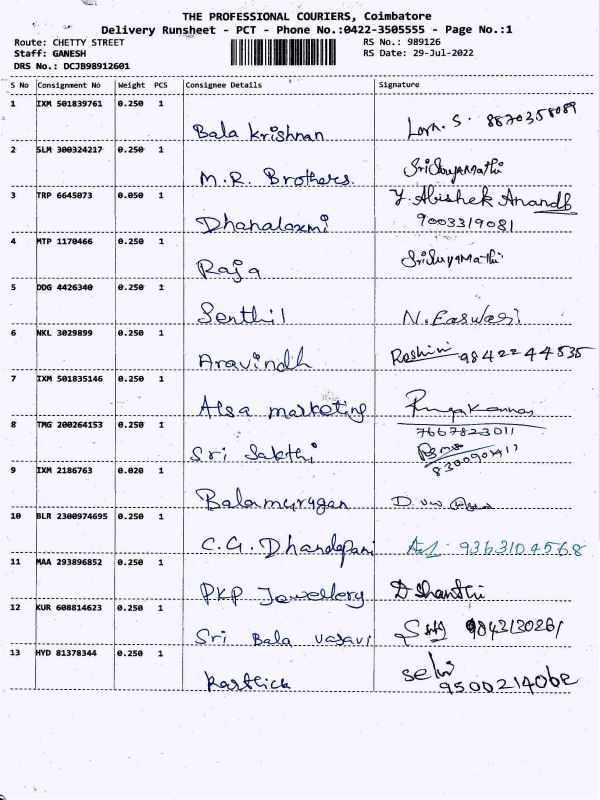 THE PROFESSIONAL COURIERS, Coimbatore
Delivery Runsheet - PCT - Phone No.:0422-3505555 - Page No.:1
Route: CHETTY STREET RS No.: 989126
Staff: GANESH RS Date: 29-Jul-2022
DRS No.: DCJB98912601
S No Consignment No Weight PCS Consignee Details Signature
1 IXM 501839761 0.250 1
Bala Krishnan S. 8870358089
2 SLM 300324217 0.250 1
M.R. Brothers.
3 TRP 6645073 0.050 1 Y. Abishek Anand
Dhanalaxmi 9003319081
4 MTP 1170466 0.250 1
Raja
5 DDG 4426340 0.250 1
Senthil N. Easwari
6 NKL 3029899 0.250 1
Aravindh Roshini 9842244535
7 IXM 501835146 0.250 1
Alsa marketing
8 TMG 200264153 0.250 1 7667823011
Sri Sakthi
9 IXM 2186763 0.020 1
Balamurugan
10 BLR 2300974695 0.250 1
C.G. Dhandapani 9363104568
11 MAA 293896852 0.250 1
PKP Jewellery D Shanthi
12 KUR 608814623 0.250 1
Sri Bala vasavi
13 HYD 81378344 0.250 1
Karthick